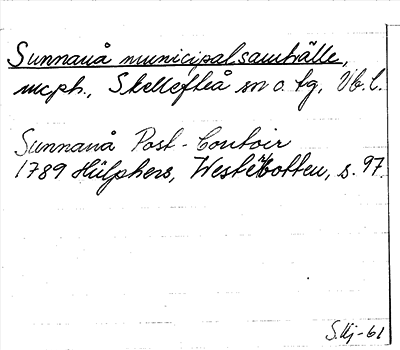 Sunnanå municipalsamhälle,
mcph., Skellefteå sn o. tg, Vb. l.
Sunnanå Post-Contoir
1789 Hülphers, Westerbotten, s. 97.
-61